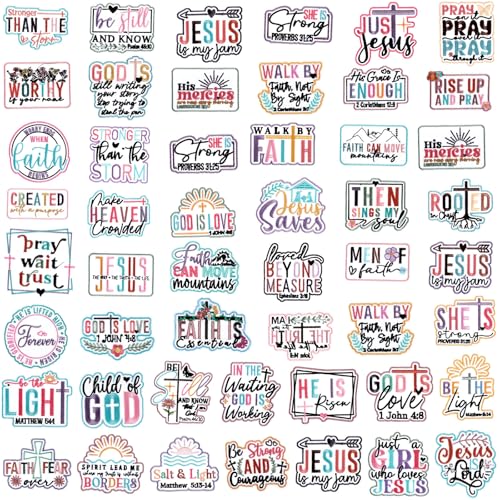 Stronger
THAN THE
Storm
be still
AND KNOW
Psalm 46:10
JESUS
is my jam
SHE IS
Strong
PROVERBS 31:25
JUST
Jesus
PRAY
on it
PRAY
over it
PRAY
through it
WORTHY
is your name
GOD IS
still writing
your story
stop trying to
steal the pen
His
mercies
are new every morning
WALK BY
Faith, Not
By Sight
2 Corinthians 5:7
His Grace Is
ENOUGH
2 Corinthians 12:9
RISE UP
AND PRAY
WORRY ENDS
WHEN
faith
BEGINS
STRONGER
than the
STORM
SHE IS
Strong
PROVERBS 31:25
WALK BY
FAITH
FAITH CAN MOVE
mountains
His
mercies
are new every morning
CREATED
with a purpose
Make
HEAVEN
Crowded
GOD IS LOVE
1 JOHN 4:8
Jesus
Saves
THEN
SINGS MY
soul
ROOTED
in Christ
pray
wait
trust
JESUS
THE WAY • THE TRUTH • THE LIFE
Faith
CAN MOVE
mountains
loved
BEYOND
MEASURE
Ephesians 3:18
MEN OF
faith
JESUS
is my jam
Forever
GOD IS LOVE
1 JOHN 4:8
FAITH IS
Essential
WALK BY
Faith, Not
By Sight
2 Corinthians 5:7
SHE IS
strong
PROVERBS 31:25
be the
LIGHT
MATTHEW 5:14
Child of
GOD
BE
still
AND KNOW
IN THE
Waiting
GOD IS
Working
HE IS
Risen
GOD IS
love
1 John 4:8
BE THE
Light
MATTHEW 5:14
FAITH
over
FEAR
SPIRIT LEAD ME
BORDERS
Salt & Light
Matthew 5:13-14
Be Strong
AND
Courageous
JESUS
is my jam
just a
GIRL
who loves
JESUS
Jesus
is
Lord